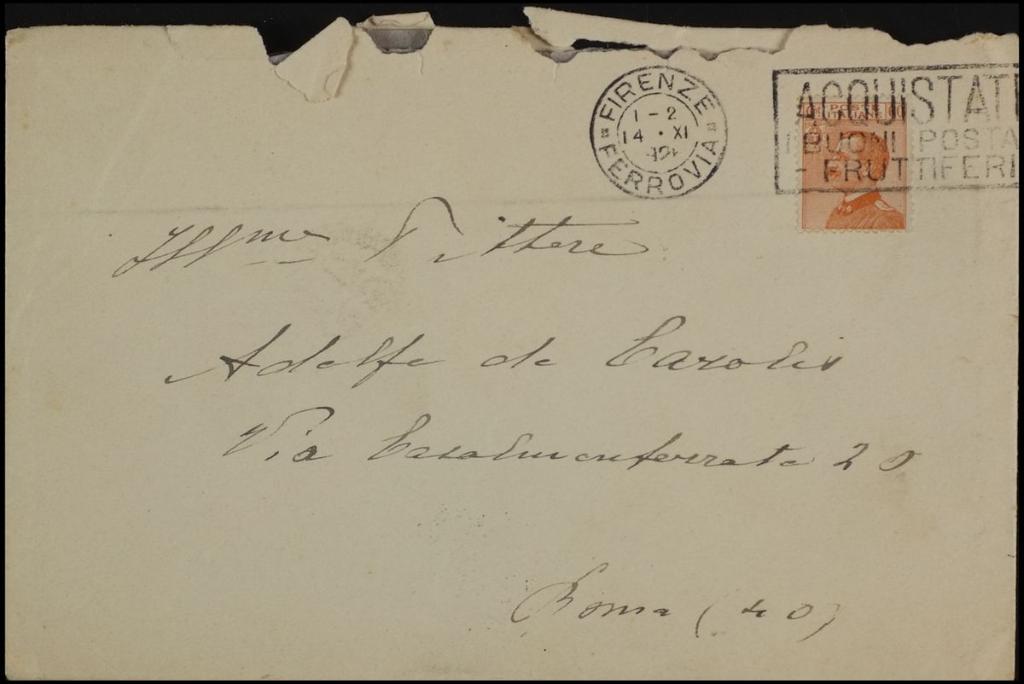 FIRENZE
1-2
14 · XI
FERROVIA
ACQUISTATE
I BUONI POSTA
- FRUTTIFERI
POSTE
ITALIANE
Ill.mo Pittore
Adolfo de Carolis
Via Casalmonferrato 20
Roma (40)